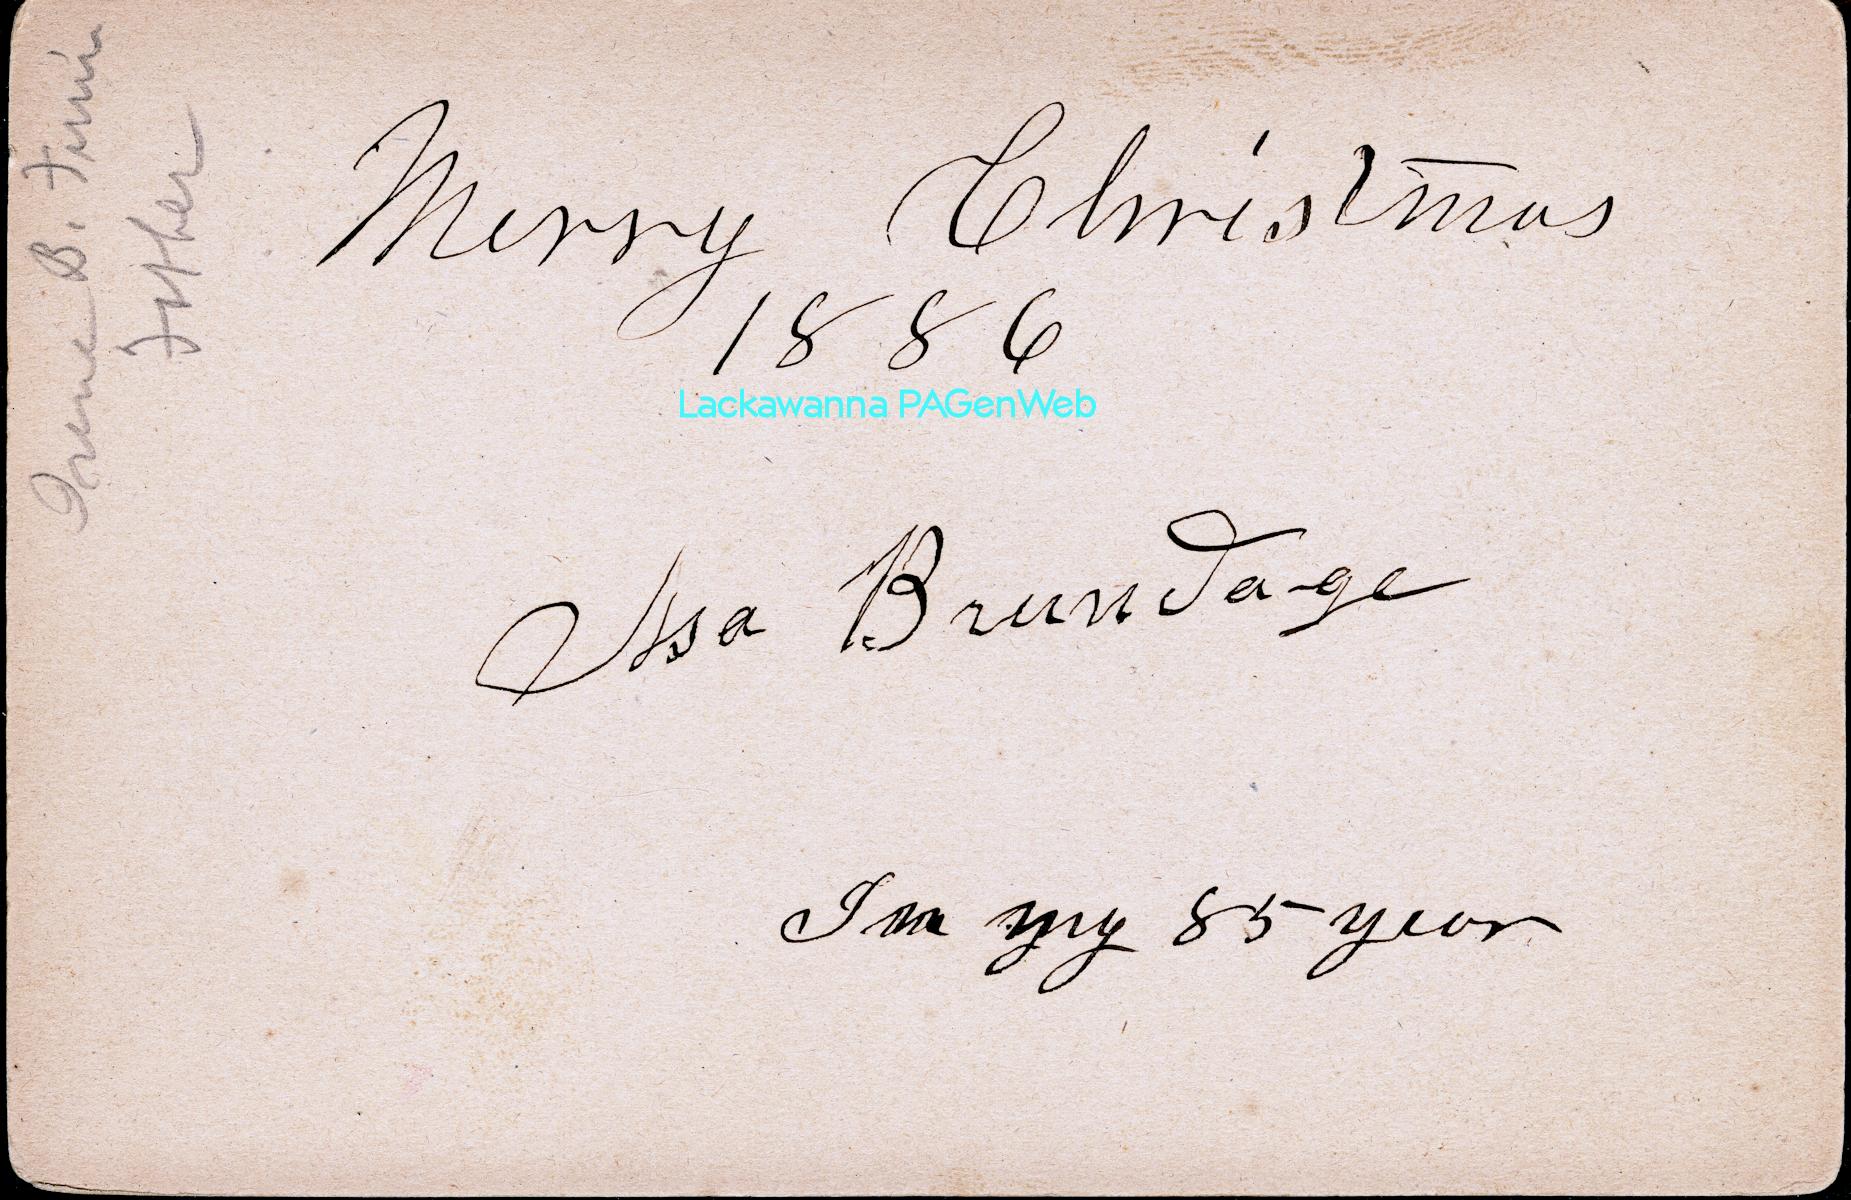 Merry Christmas
1886
Lackawanna PAGenWeb
Asa Brundage
In my 85 year
Irene B. Finn
Father